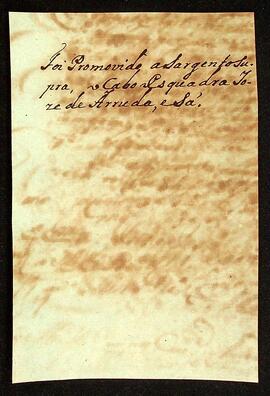 Foi Promovido a Sargento su-
pra, o Cabo Esquadra Jo-
ze de Arruda, e Sá.